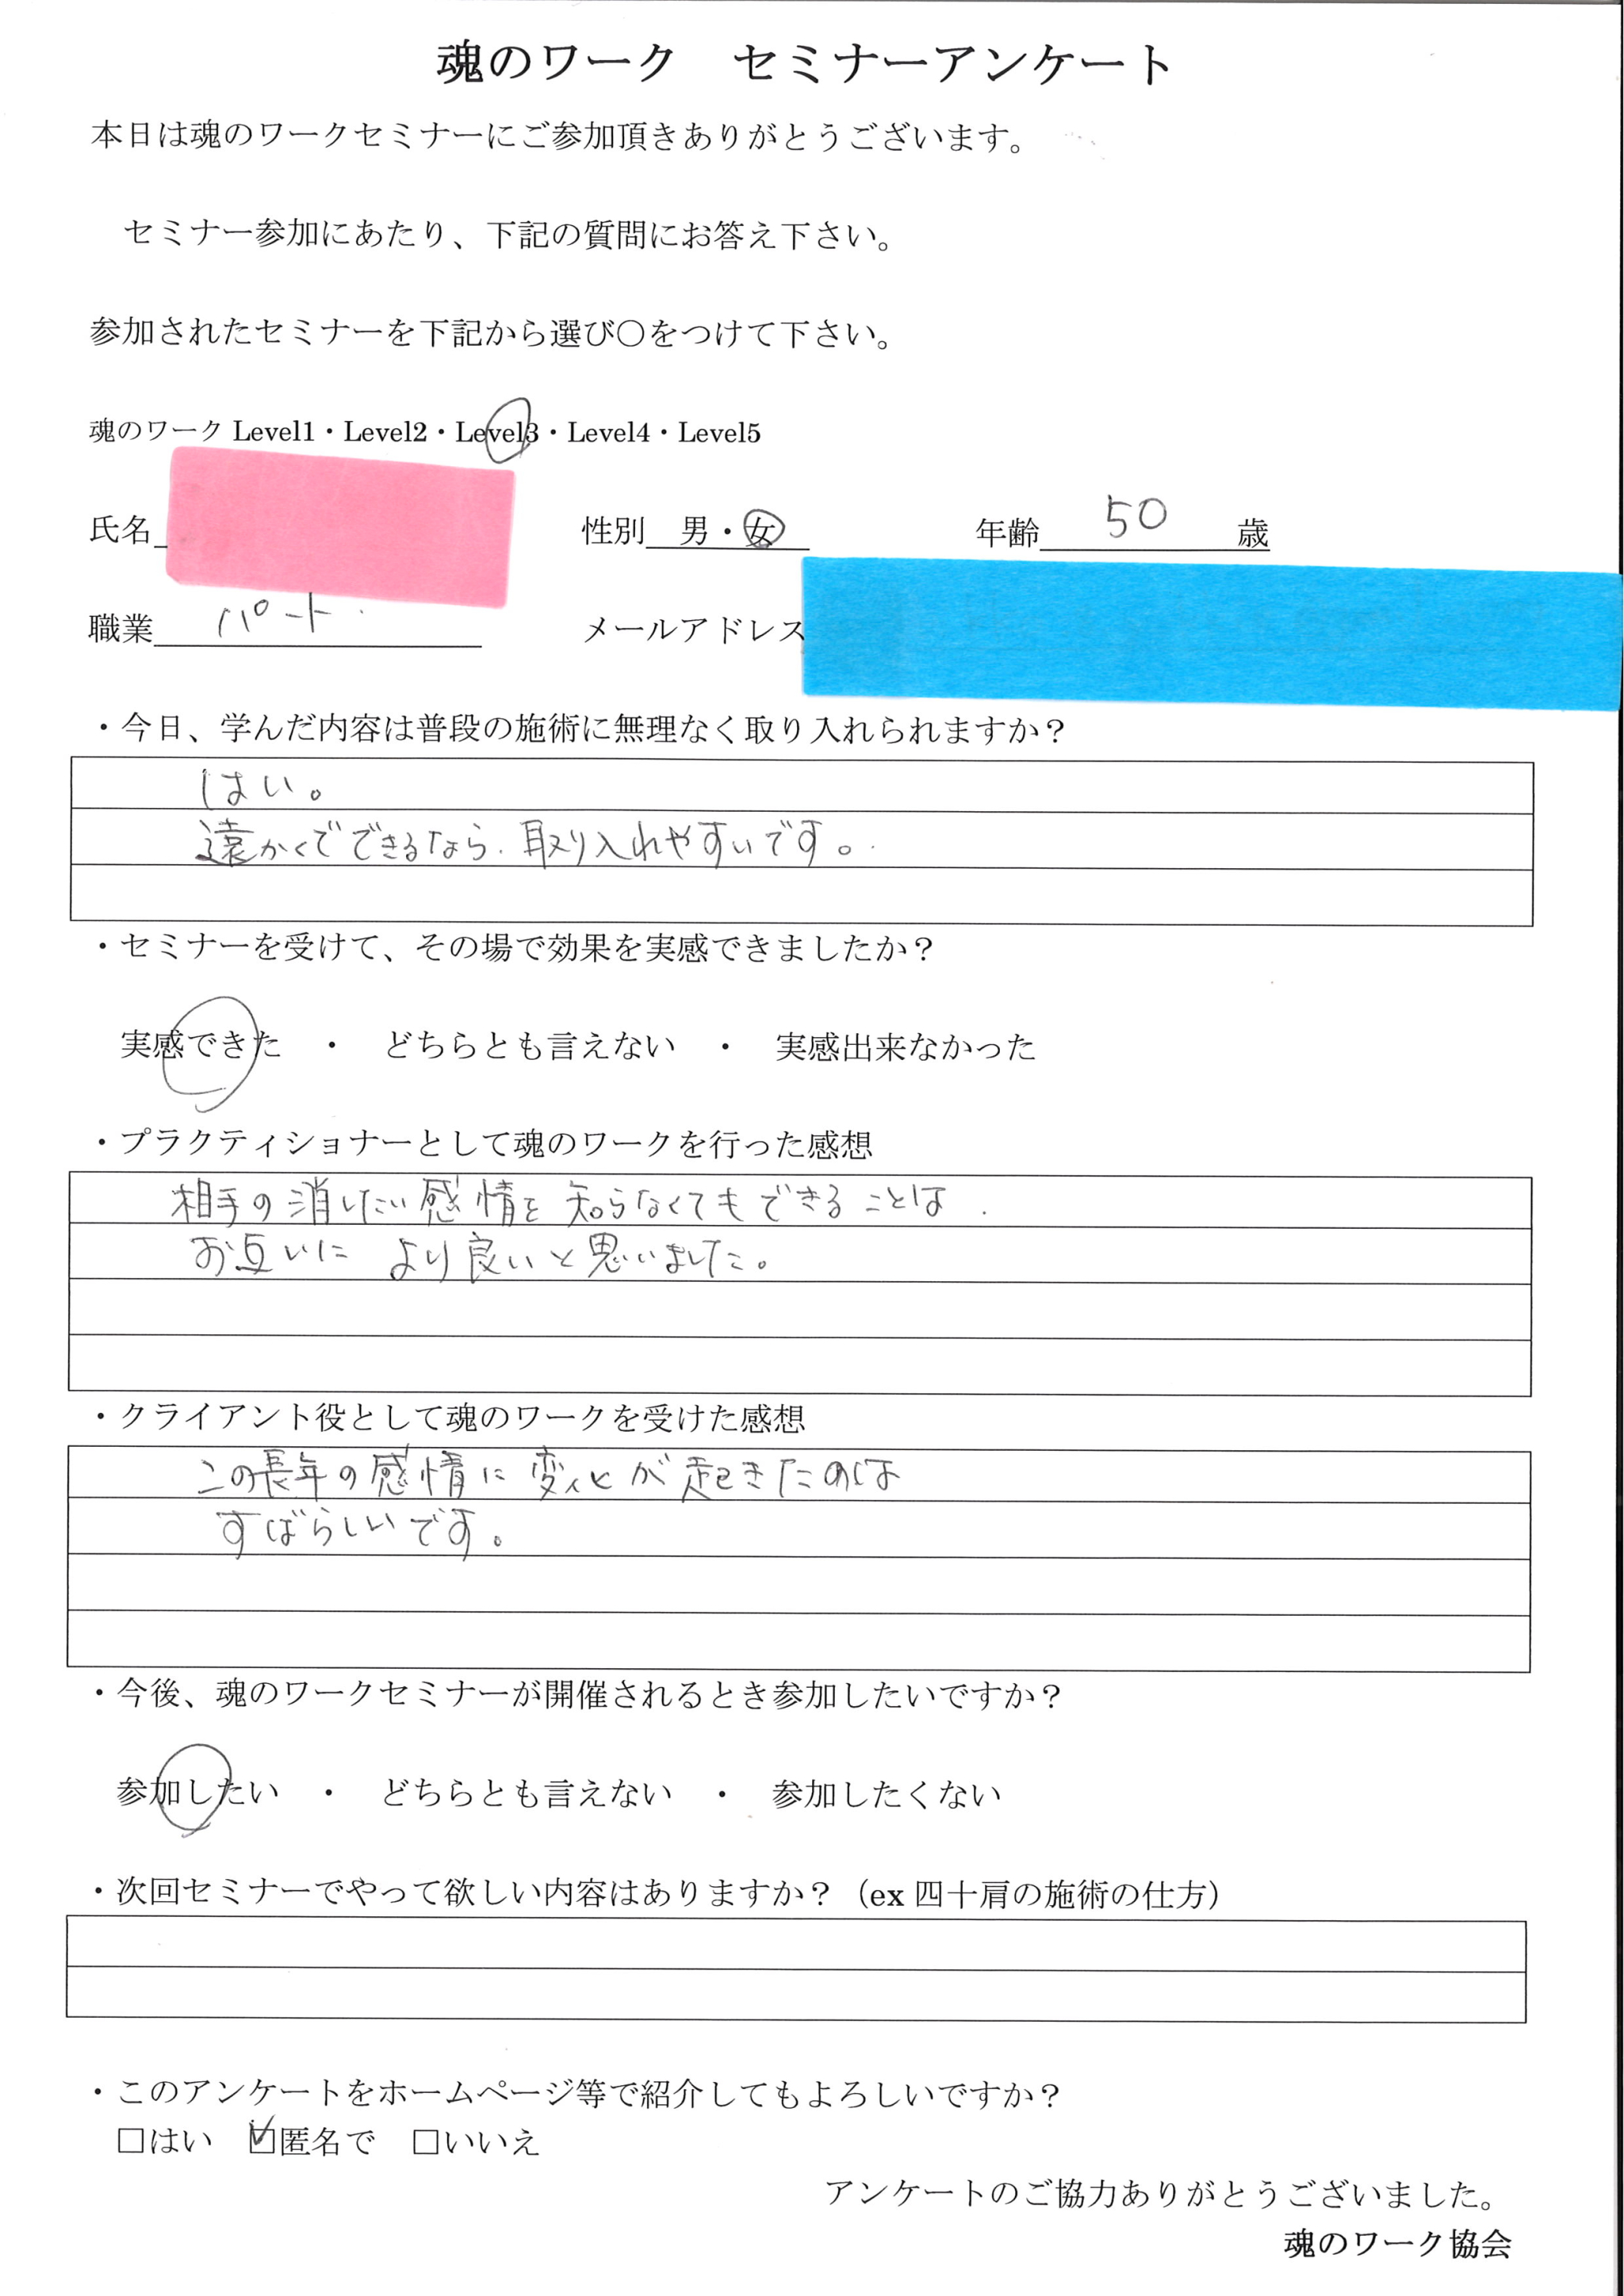 魂のワーク　セミナーアンケート
本日は魂のワークセミナーにご参加頂きありがとうございます。
セミナー参加にあたり、下記の質問にお答え下さい。
参加されたセミナーを下記から選び〇をつけて下さい。
魂のワーク Level1・Level2・Level3・Level4・Level5
氏名 性別 男・女 年齢 50 歳
職業 パート メールアドレス
・今日、学んだ内容は普段の施術に無理なく取り入れられますか？
はい。
遠かくでできるなら、取り入れやすいです。
・セミナーを受けて、その場で効果を実感できましたか？
実感できた　・　どちらとも言えない　・　実感出来なかった
・プラクティショナーとして魂のワークを行った感想
相手の消したい感情を知らなくてもできることは
お互いに より良いと思いました。
・クライアント役として魂のワークを受けた感想
この長年の感情に変化が起きたのは
すばらしいです。
・今後、魂のワークセミナーが開催されるとき参加したいですか？
参加したい　・　どちらとも言えない　・　参加したくない
・次回セミナーでやって欲しい内容はありますか？（ex 四十肩の施術の仕方）
・このアンケートをホームページ等で紹介してもよろしいですか？
□はい　☑匿名で　□いいえ
アンケートのご協力ありがとうございました。
魂のワーク協会